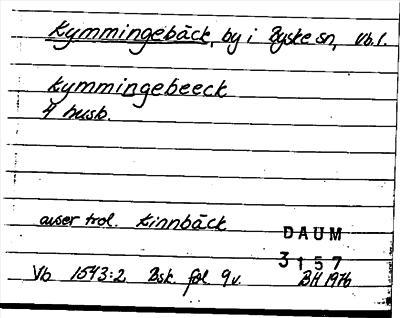 Kymmingebäck, by i Byske sn, Vb. l.
Kymmingebeeck
4 husb.
avser trol. Kinnbäck
DAUM
3157
Vb 1543:2 Bsk. fol. 9v. BH 1976